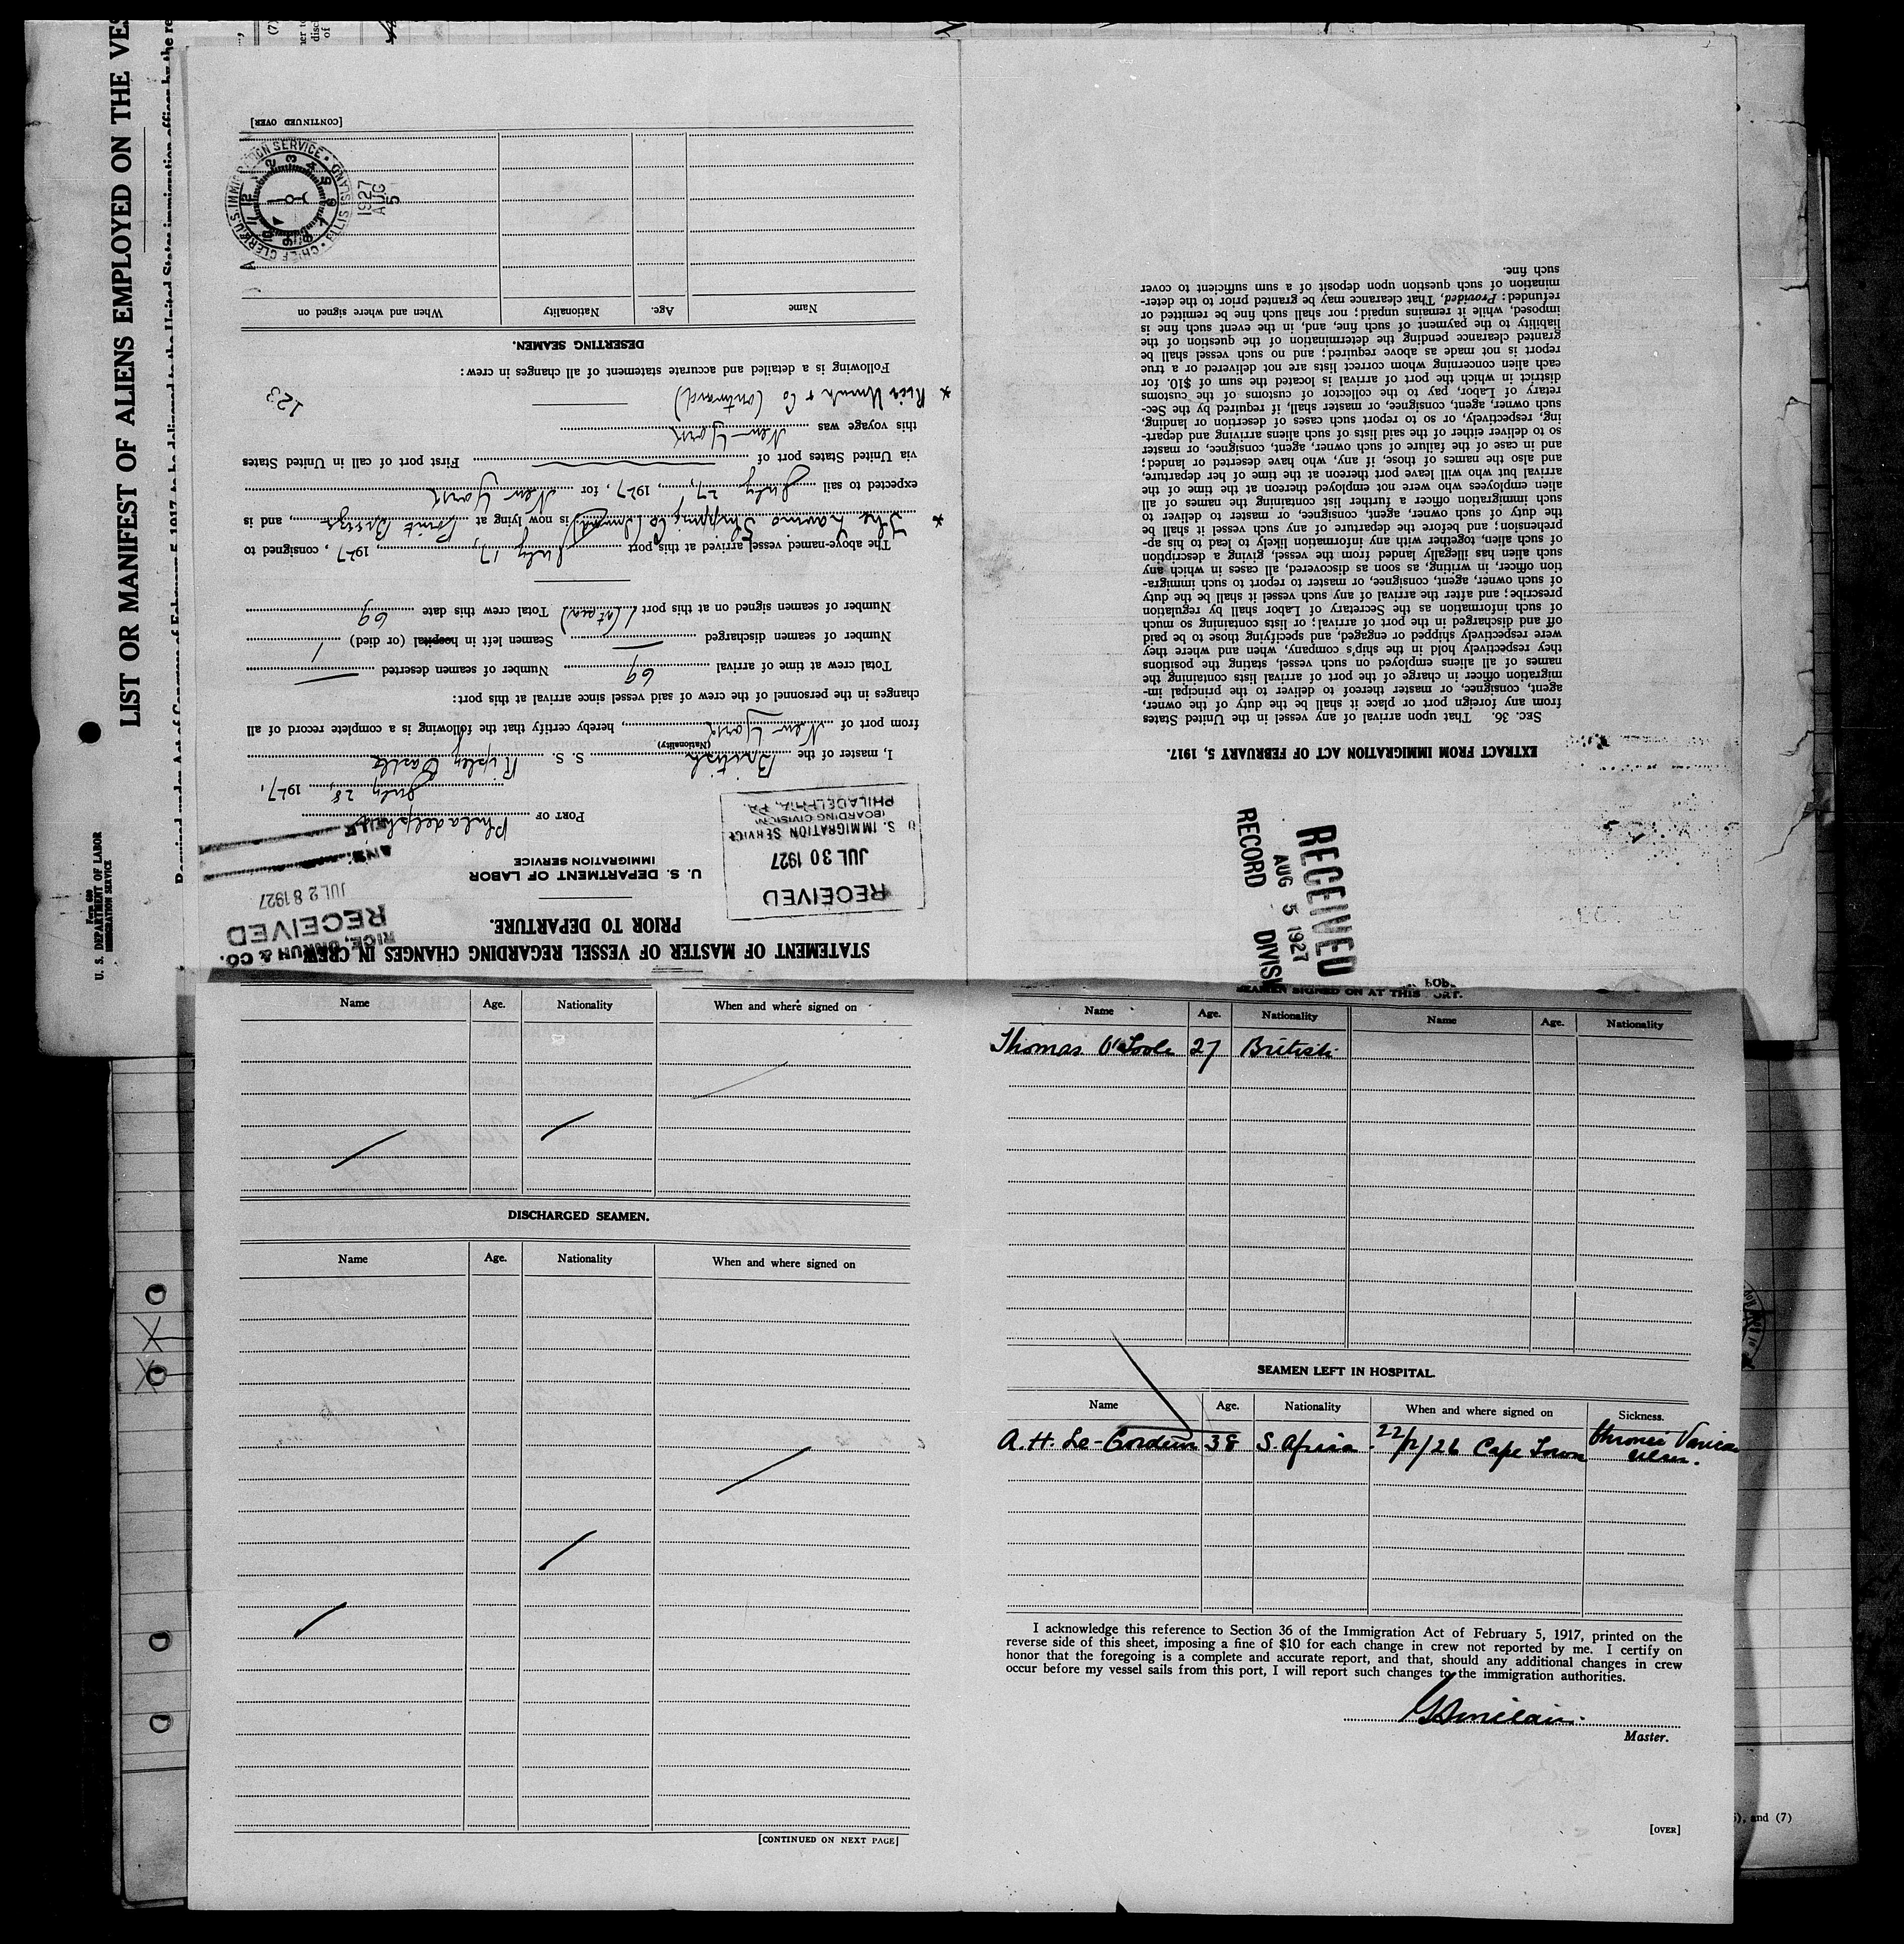 LIST OR MANIFEST OF ALIENS EMPLOYED ON THE VES
Form 680
U. S. DEPARTMENT OF LABOR
IMMIGRATION SERVICE
STATEMENT OF MASTER OF VESSEL REGARDING CHANGES IN CREW
PRIOR TO DEPARTURE.
U. S. DEPARTMENT OF LABOR
IMMIGRATION SERVICE
RECEIVED
JUL 28 1927
RECEIVED
JUL 30 1927
U. S. IMMIGRATION SERVICE
BOARDING DIVISION
PHILADELPHIA, PA.
PORT OF Philadelphia
July 28, 1927.
I, master of the British S. S. Ripley Castle
(Nationality)
from port of New York, hereby certify that the following is a complete record of all
changes in the personnel of the crew of said vessel since arrival at this port:
Total crew at time of arrival 69 Number of seamen deserted
Number of seamen discharged Seamen left in hospital (or died) 1
Number of seamen signed on at this port 1 Total crew this date 69
The above-named vessel arrived at this port July 17, 1927, consigned to
* The Shipping Co is now lying at Point Breeze, and is
expected to sail July 27, 1927, for New York
via United States port of First port of call in United States
this voyage was New York
* & Co
123
Following is a detailed and accurate statement of all changes in crew:
DESERTING SEAMEN.
Name Age. Nationality When and where signed on
U.S. IMMIGRATION SERVICE · ELLIS ISLAND · CHIEF CLERK
1927
AUG
5
[CONTINUED OVER]
RECEIVED
AUG 5 1927
RECORD DIVISI
EXTRACT FROM IMMIGRATION ACT OF FEBRUARY 5, 1917.
SEC. 36. That upon arrival of any vessel in the United States
from any foreign port or place it shall be the duty of the owner,
agent, consignee, or master thereof to deliver to the principal im-
migration officer in charge of the port of arrival lists containing the
names of all aliens employed on such vessel, stating the positions
they respectively hold in the ship's company, when and where they
were respectively shipped or engaged, and specifying those to be paid
off and discharged in the port of arrival; or lists containing so much
of such information as the Secretary of Labor shall by regulation
prescribe; and after the arrival of any such vessel it shall be the duty
of such owner, agent, consignee, or master to report to such immigra-
tion officer, in writing, as soon as discovered, all cases in which any
such alien has illegally landed from the vessel, giving a description
of such alien, together with any information likely to lead to his ap-
prehension; and before the departure of any such vessel it shall be
the duty of such owner, agent, consignee, or master to deliver to
such immigration officer a further list containing the names of all
alien employees who were not employed thereon at the time of the
arrival but who will leave port thereon at the time of her departure,
and also the names of those, if any, who have deserted or landed;
and in case of the failure of such owner, agent, consignee, or master
so to deliver either of the said lists of such aliens arriving and depart-
ing, respectively, or so to report such cases of desertion or landing,
such owner, agent, consignee, or master shall, if required by the Sec-
retary of Labor, pay to the collector of customs of the customs
district in which the port of arrival is located the sum of $10. for
each alien concerning whom correct lists are not delivered or a true
report is not made as above required; and no such vessel shall be
granted clearance pending the determination of the question of the
liability to the payment of such fine, and, in the event such fine is
imposed, while it remains unpaid; nor shall such fine be remitted or
refunded: Provided, That clearance may be granted prior to the deter-
mination of such question upon deposit of a sum sufficient to cover
such fine.
Name Age. Nationality When and where signed on
DISCHARGED SEAMEN.
Name Age. Nationality When and where signed on
[CONTINUED ON NEXT PAGE]
SEAMEN SIGNED ON AT THIS PORT.
Name Age. Nationality Name Age. Nationality
Thomas O'Toole 27 British
SEAMEN LEFT IN HOSPITAL.
Name Age. Nationality When and where signed on Sickness.
A. H. Le- 38 S. Africa Cape Town
I acknowledge this reference to Section 36 of the Immigration Act of February 5, 1917, printed on the
reverse side of this sheet, imposing a fine of $10 for each change in crew not reported by me. I certify on
honor that the foregoing is a complete and accurate report, and that, should any additional changes in crew
occur before my vessel sails from this port, I will report such changes to the immigration authorities.
Master.
[OVER]
, and (7)